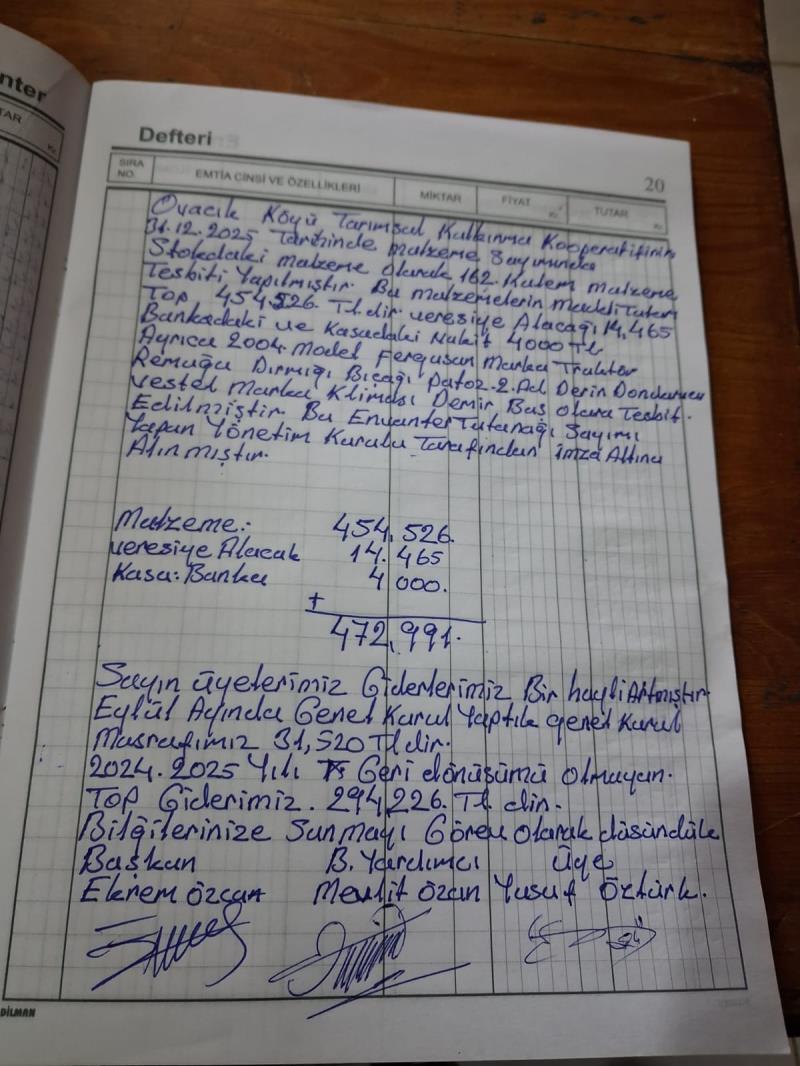 nter
TAR
Defteri
20
SIRA NO. EMTİA CİNSİ VE ÖZELLİKLERİ MİKTAR FİYAT TUTAR
Ovacık Köyü Tarımsal Kalkınma Kooperatifinin
31.12.2025 Tarihinde Malzeme Sayımında
Stokdaki malzeme olarak 162. Kalem Malzeme
Tesbiti Yapılmıştır Bu malzemelerin maddi Tutarı
Top 454.526. Tl.dir veresiye Alacağı 14,465
Bankadaki ve Kasadaki Nakit 4000 Tl
Ayrıca 2004. Model Fergusan Marka Traktör
Remuğu Dırmığı Bıçağı Patoz. 2. Ad. Derin Dondurucu
Vestel Marka Kliması Demir Baş olara Tesbit.
Edilmiştir Bu Envanter Tutanağı Sayımı
Yapan Yönetim Kurulu Tarafından İmza Altına
Alınmıştır.
Malzeme: 454.526.
veresiye Alacak 14.465
Kasa: Banka 4 000.
+
472,991.
Sayın üyelerimiz Giderlerimiz Bir hayli Artmıştır
Eylül Ayında Genel Kurul Yaptık genel Kurul
Masrafımız 31,520 Tl dir.
2024.2025 Yılı Geri dönüşümü olmayan.
Top Giderimiz. 294,226. Tl. dir.
Bilgilerinize Sunmayı Görev olarak düşündük
Başkan B. Yardımcı üye
Ekrem Özcan Mevlit Özcan Yusuf Öztürk.
DİLMAN